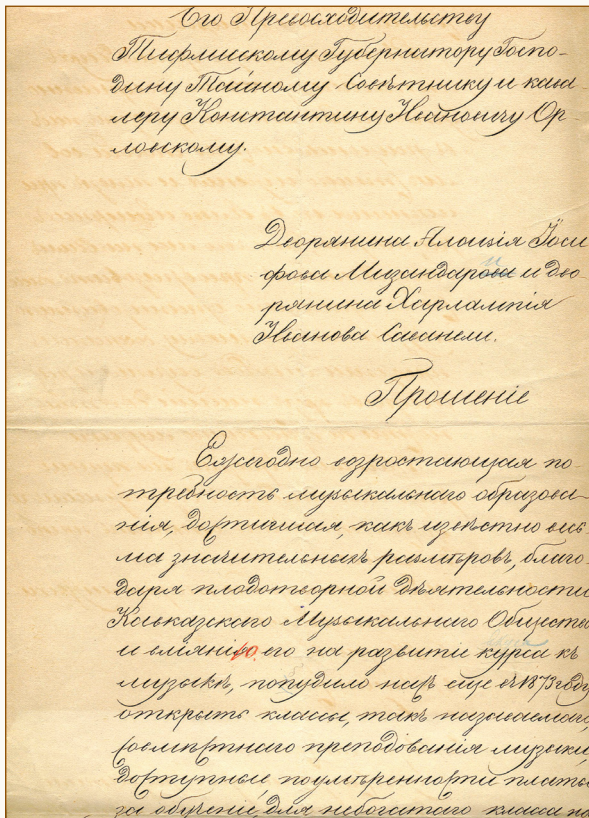 Его Превосходительству
Тифлисскому Губернатору Госпо-
дину Тайному Совѣтнику и кава-
леру Константину Ивановичу Ор-
ловскому.
Дворянина Алоизія Іоси
фова Мизандарова и дво
рянина Харлампія
Иванова Саванели.
Прошеніе
Ежегодно возростающая по-
требность музыкальнаго образова-
нія, достигшая, какъ извѣстно вись
ма значительныхъ размѣровъ, благо-
даря плодотворной дѣятельности
Кавказскаго Музыкальнаго Общества
и вліянію его на развитіе къ
музыкѣ, побудило насъ еще съ 1873 году
открыть классы, такъ называемаго,
совмѣстнаго преподованія музыки,
доступные, по умѣренности платы
за обученіе, для небогатаго класса по